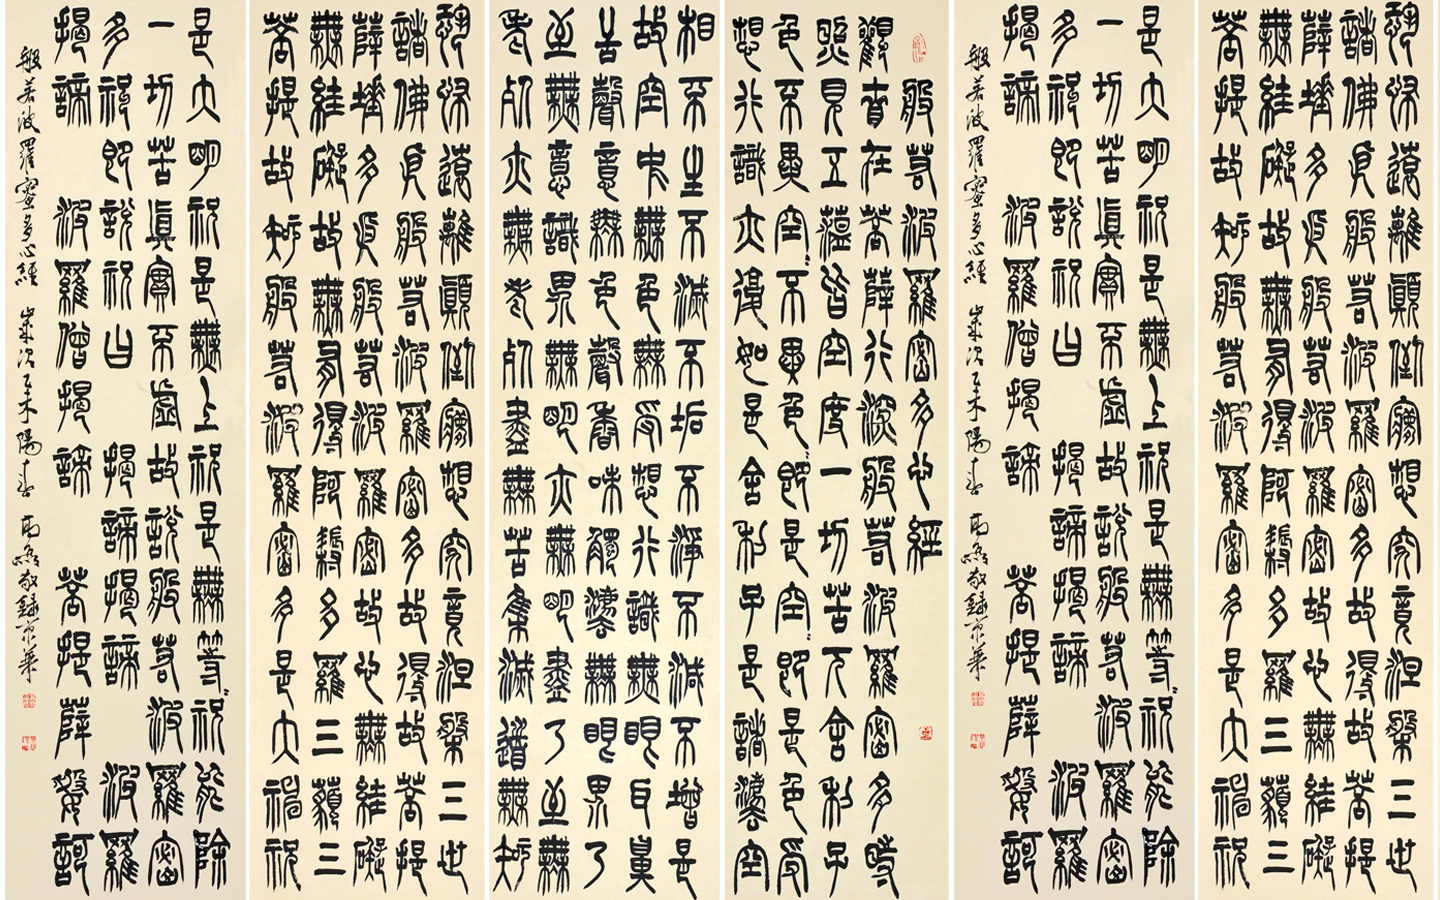 恐怖遠離顛倒夢想究竟涅槃三世
諸佛依般若波羅密多故得故菩提
薩埵多依般若波羅密故心無罣礙
無罣礙故無有得阿耨多羅三藐三
菩提故知般若波羅密多是大神咒
是大明咒是無上咒是無等〻咒能除
一切苦真實不虛故說般若波羅密
多咒即說咒曰 揭諦揭諦 波羅
揭諦 波羅僧揭諦 菩提薩婆訶
般若波羅蜜多心經 歲次乙未陽春 敬錄京華
般若波羅密多心經
觀自在菩薩行深般若波羅密多時
照見五蘊皆空度一切苦厄舍利子
色不異空〻不異色〻即是空〻即是色受
想行識亦復如是舍利子是諸法空
相不生不滅不垢不淨不減不增是
故空中無色無受想行識無眼耳鼻
舌聲意無色聲香味觸法無眼界乃
至無意識界無明亦無明盡乃至無
老死亦無老死盡無苦集滅道無知
恐怖遠離顛倒夢想究竟涅槃三世
諸佛依般若波羅密多故得故菩提
薩埵多依般若波羅密故心無罣礙
無罣礙故無有得阿耨多羅三藐三
菩提故知般若波羅密多是大神咒
是大明咒是無上咒是無等〻咒能除
一切苦真實不虛故說般若波羅密
多咒即說咒曰 揭諦揭諦 波羅
揭諦 波羅僧揭諦 菩提薩婆訶
般若波羅蜜多心經 歲次乙未陽春 敬錄京華